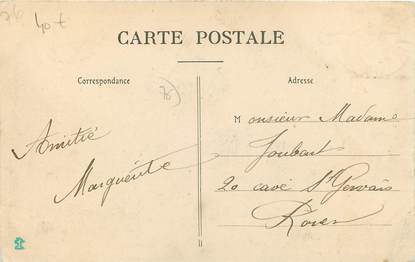 40 f
CARTE POSTALE
Correspondance
Adresse
Amitié
Marguerite
Monsieur Madame
Joubert
20 cavé St Gervais
Rouen